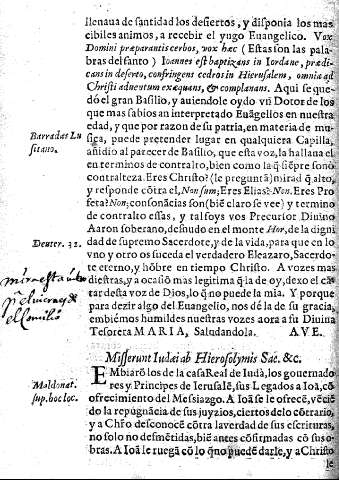 llenaua de santidad los desiertos, y disponia los mas
cibiles animos, a recebir el yugo Euangelico. Vox
Domini præparantis cerbos, vox hæc (Estas son las pala
bras del santo) Ioannes est baptizans in Iordane, prædi-
cans in deserto, confringens cedros in Hierusalem, omnia ad
Christi aduentum exæquans, & complanans. Aqui se que-
dó el gran Basilio, y auiendole oydo vñ Dotor de los
que mas sabios an interpretado Euãgelios en nuestra
edad, y que por razon de su patria, en materia de mu-
Barradas Lu
sitano.
siga, puede pretender lugar en qualquiera Capilla,
añidio al parecer de Basilio, que esta voz, la hallaua el
en terminos de contralto, bien como la q̃ siẽpre sonò
contralteza. Eres Christo? (le preguntã) mirad q̃ alto,
y responde cõtra el, Non sum; Eres Elias? Non. Eres Pro
feta? Non; consonãcias son (biẽ claro se vee) y termino
de contralto essas, y tal soys vos Precursor Diuino
Deuter. 32.
Aaron soberano, desnudo en el monte Hor, de la digni
dad de supremo Sacerdote, y de la vida, para que en lo
vno y otro os suceda el verdadero Eleazaro, Sacerdo-
te eterno, y hõbre en tiempo Christo. A vozes mas
diestras, y a ocasiõ mas legitima q̃ la de oy, dexo el cã
tar desta voz de Dios, lo q̃ no puede la mia. Y porque
para dezir algo del Euangelio, nos dè la de su gracia,
embiemos humildes nuestras vozes aora a su Diuina
Tesorera MARIA, Saludandola. AVE.
Misserunt Iudæi ab Hierosolymis Sac. &c.
EMbiarõ los de la casa Real de Iudà, los gouernado
Maldonat.
sup. hoc loc.
res y Principes de Ierusalẽ, sus Legados a Ioã, cõ
ofrecimiento del Messiazgo. A Ioã se le ofrecẽ, vẽciẽ
do la repugnãcia de sus juyzios, ciertos de lo cõtrario,
y a Chrõ desconocẽ cõtra la verdad de sus escrituras,
no solo no desmẽtidas, biẽ antes cõfirmadas cõ sus o-
bras. A Ioã le ruegã cõ lo q̃ no puede darle, y a Christo
le